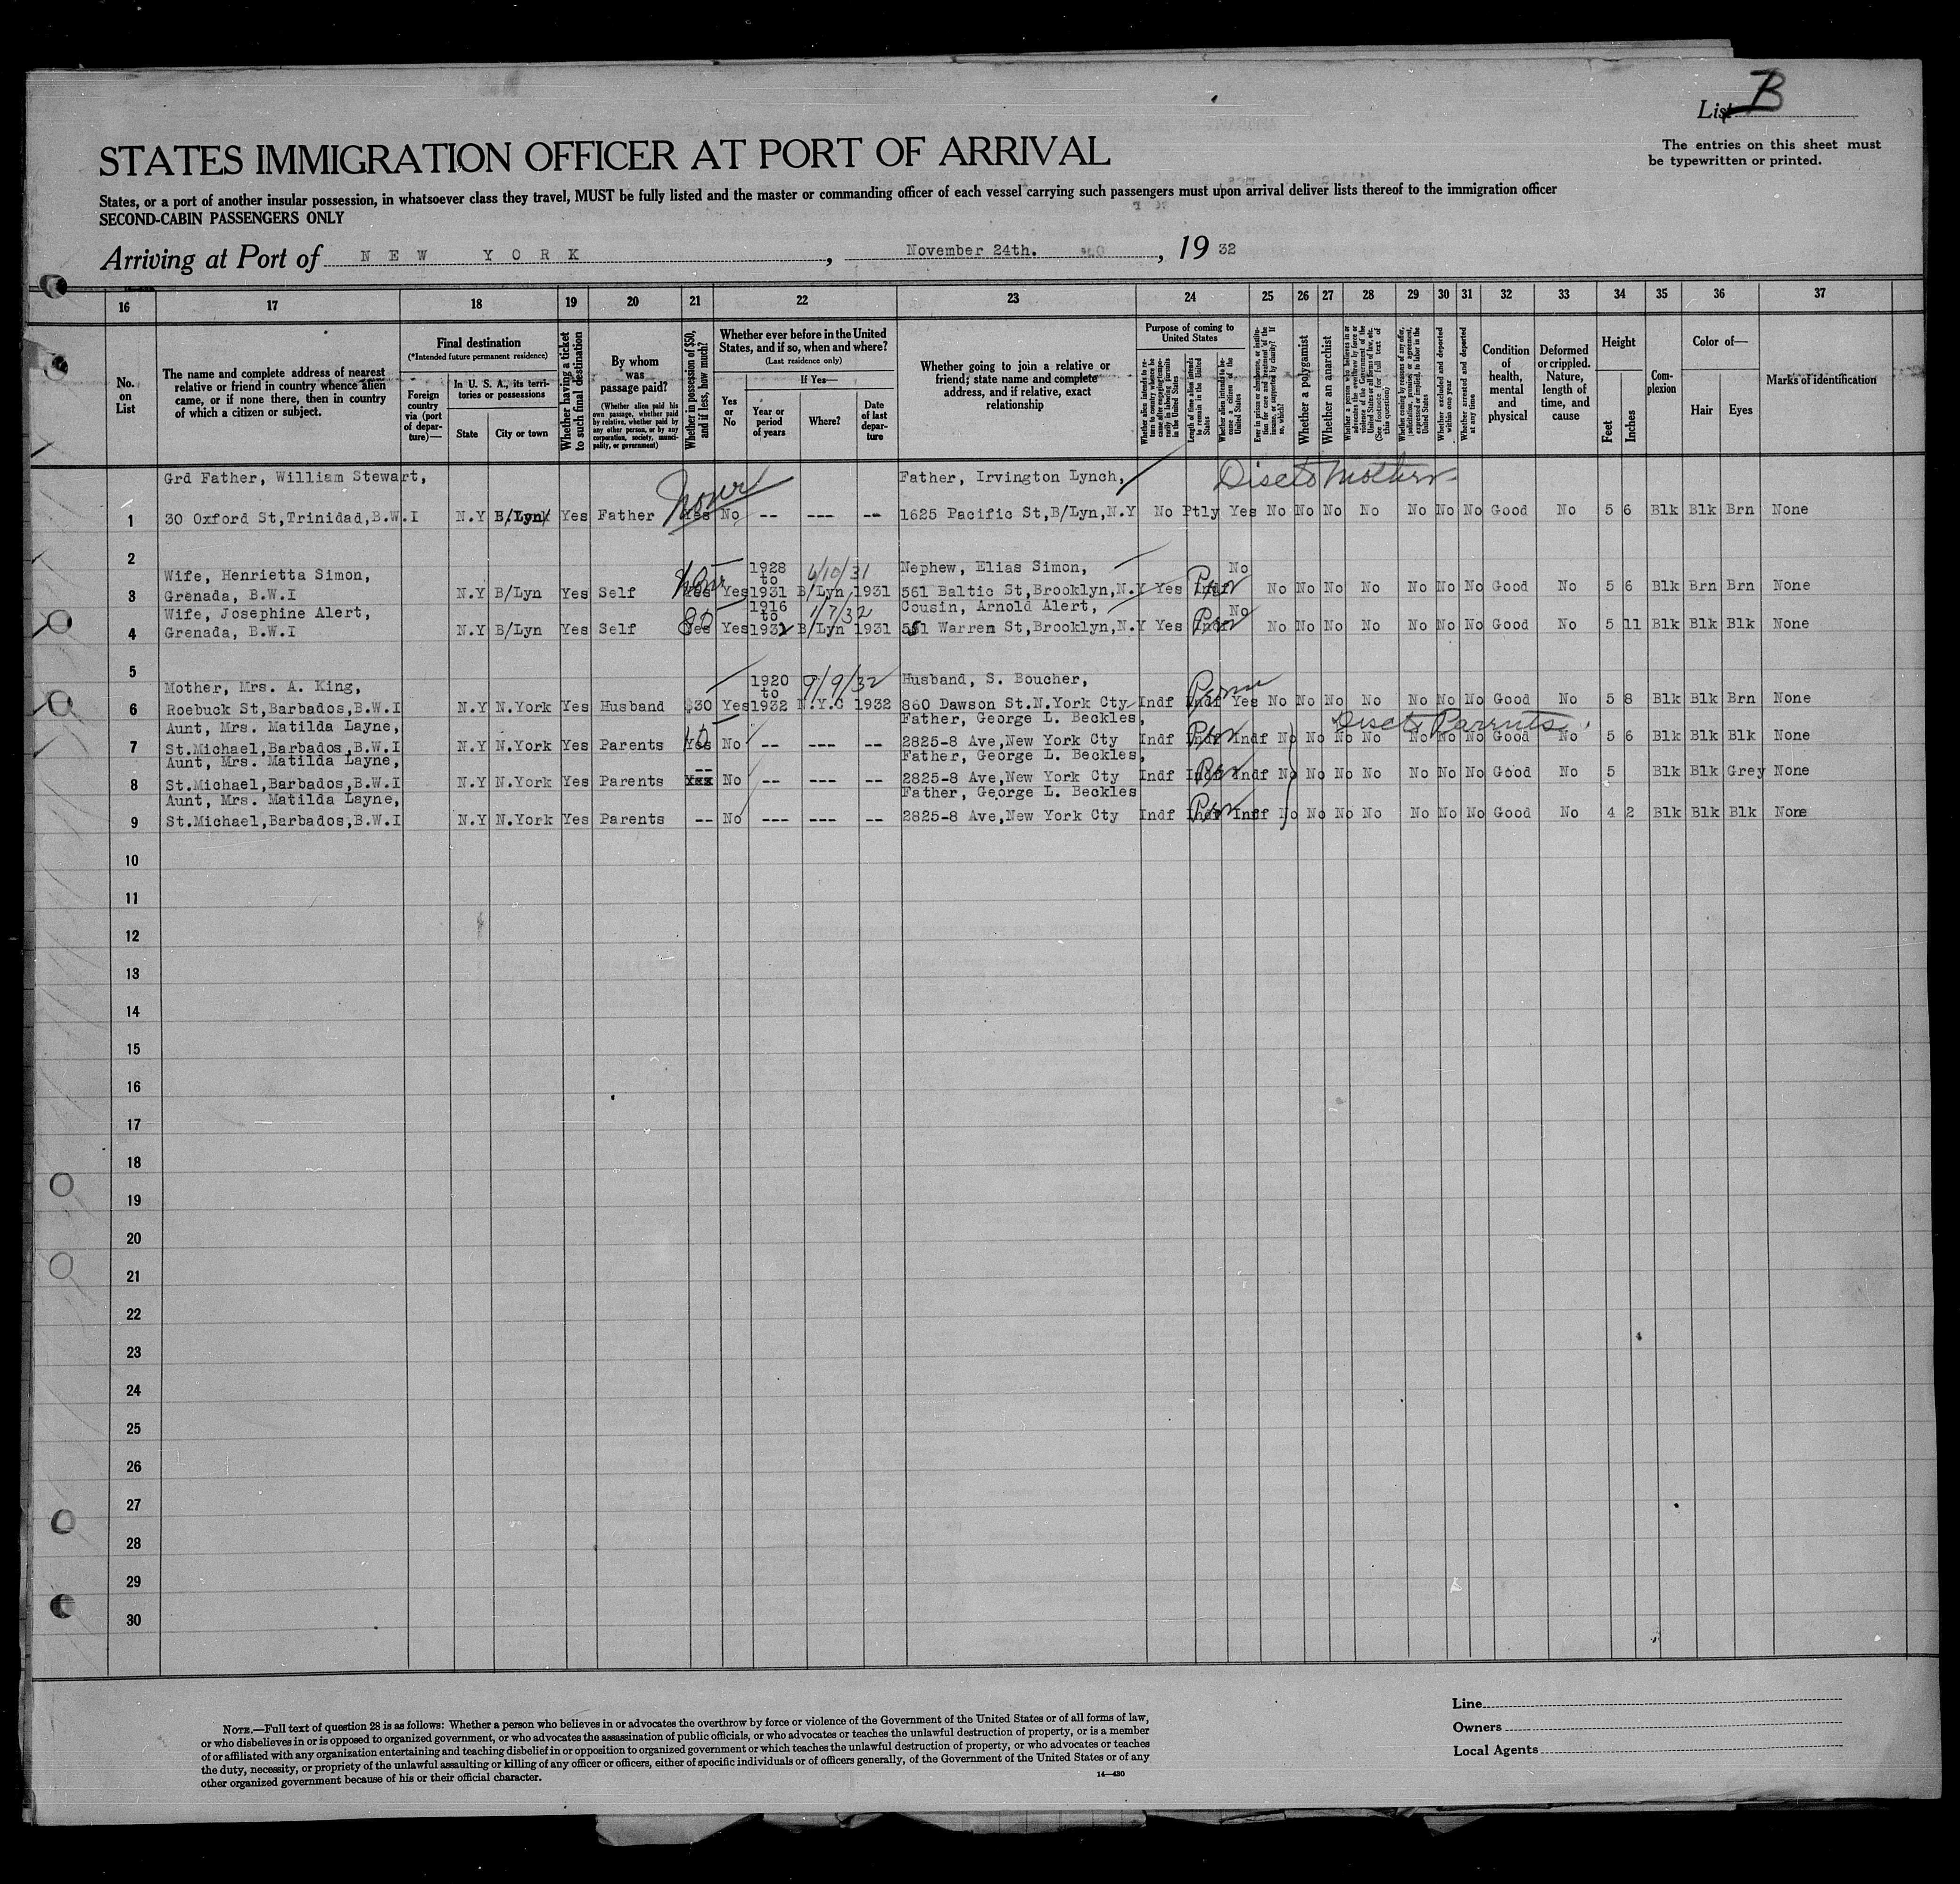 List B
The entries on this sheet must
be typewritten or printed.
STATES IMMIGRATION OFFICER AT PORT OF ARRIVAL
States, or a port of another insular possession, in whatsoever class they travel, MUST be fully listed and the master or commanding officer of each vessel carrying such passengers must upon arrival deliver lists thereof to the immigration officer
SECOND-CABIN PASSENGERS ONLY
Arriving at Port of NEW YORK, November 24th. , 19 32
16 17 18 19 20 21 22 23 24 25 26 27 28 29 30 31 32 33 34 35 36 37
No. on List
The name and complete address of nearest relative or friend in country whence alien came, or if none there, then in country of which a citizen or subject.
Final destination
(*Intended future permanent residence)
Foreign country via (port of departure)—
In U. S. A., its territories or possessions
State
City or town
Whether having a ticket to such final destination
By whom was passage paid?
(Whether alien paid his own passage, whether paid by relative, whether paid by any other person, or by any corporation, society, municipality, or government)
Whether in possession of $50, and if less, how much?
Whether ever before in the United States, and if so, when and where?
(Last residence only)
Yes or No
If Yes—
Year or period of years
Where?
Date of last departure
Whether going to join a relative or friend; state name and complete address, and if relative, exact relationship
Purpose of coming to United States
Whether alien intends to return to country whence he came after engaging temporarily in laboring pursuits in the United States
Length of time alien intends to remain in the United States
Whether alien intends to become a citizen of the United States
Ever in prison or almshouse, or institution for care and treatment of the insane, or supported by charity? If so, which?
Whether a polygamist
Whether an anarchist
Whether a person who believes in or advocates the overthrow by force or violence of the Government of the United States or all forms of law, etc. (See footnote for full text of this question)
Whether coming by reason of any offer, solicitation, promise, or agreement, expressed or implied, to labor in the United States
Whether excluded and deported within one year
Whether arrested and deported at any time
Condition of health, mental and physical
Deformed or crippled. Nature, length of time, and cause
Height
Feet
Inches
Complexion
Color of—
Hair
Eyes
Marks of identification
Grd Father, William Stewart, Father, Irvington Lynch, Disc to Mother
1 30 Oxford St,Trinidad,B.W.I N.Y B/Lyn Yes Father Yes No -- --- -- 1625 Pacific St,B/Lyn,N.Y No Ptly Yes No No No No No No No Good No 5 6 Blk Blk Brn None
2
Wife, Henrietta Simon, 1928 to 6/10/31 Nephew, Elias Simon, No
3 Grenada, B.W.I N.Y B/Lyn Yes Self Yes Yes 1931 B/Lyn 1931 561 Baltic St,Brooklyn,N.Y Yes Indf No No No No No No No Good No 5 6 Blk Brn Brn None
Wife, Josephine Alert, 80 1916 to 1/7/32 Cousin, Arnold Alert, No
4 Grenada, B.W.I N.Y B/Lyn Yes Self Yes Yes 1932 B/Lyn 1931 551 Warren St,Brooklyn,N.Y Yes Indf No No No No No No No Good No 5 11 Blk Blk Blk None
5
Mother, Mrs. A. King, 1920 to 9/9/32 Husband, S. Boucher, Perm
6 Roebuck St,Barbados,B.W.I N.Y N.York Yes Husband $30 Yes 1932 N.Y.C 1932 860 Dawson St.N.York Cty Indf Indf Yes No No No No No No No Good No 5 8 Blk Blk Brn None
Aunt, Mrs. Matilda Layne, Father, George L. Beckles, Disc to Parents.
7 St.Michael,Barbados,B.W.I N.Y N.York Yes Parents Yes No -- --- -- 2825-8 Ave,New York Cty Indf Indf Indf No No No No No No No Good No 5 6 Blk Blk Blk None
Aunt, Mrs. Matilda Layne, -- Father, George L. Beckles,
8 St.Michael,Barbados,B.W.I N.Y N.York Yes Parents Yes No -- --- -- 2825-8 Ave,New York Cty Indf Indf Indf No No No No No No No Good No 5 Blk Blk Grey None
Aunt, Mrs. Matilda Layne, Father, George L. Beckles
9 St.Michael,Barbados,B.W.I N.Y N.York Yes Parents -- No --- --- -- 2825-8 Ave,New York Cty Indf Indf Indf No No No No No No No Good No 4 2 Blk Blk Blk None
10
11
12
13
14
15
16
17
18
19
20
21
22
23
24
25
26
27
28
29
30
NOTE.—Full text of question 28 is as follows: Whether a person who believes in or advocates the overthrow by force or violence of the Government of the United States or of all forms of law,
or who disbelieves in or is opposed to organized government, or who advocates the assassination of public officials, or who advocates or teaches the unlawful destruction of property, or is a member
of or affiliated with any organization entertaining and teaching disbelief in or opposition to organized government or which teaches the unlawful destruction of property, or who advocates or teaches
the duty, necessity, or propriety of the unlawful assaulting or killing of any officer or officers, either of specific individuals or of officers generally, of the Government of the United States or of any
other organized government because of his or their official character.
14—430
Line
Owners
Local Agents